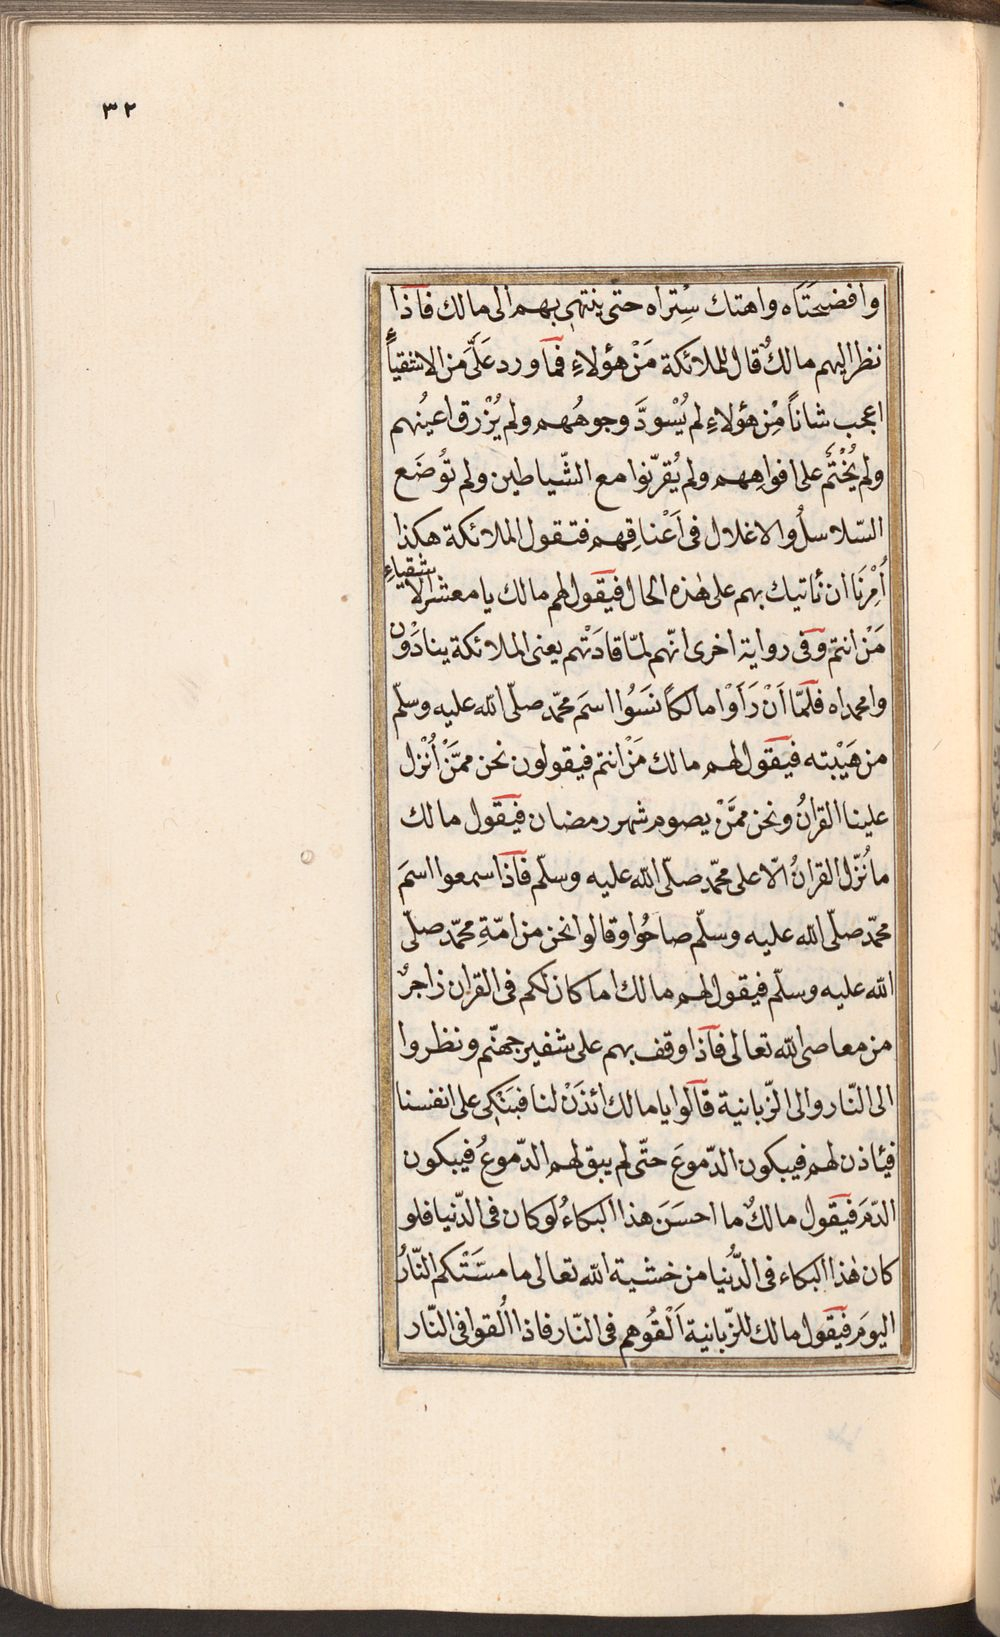 ٣٢
وافضيحتاه واهتك سِتراه حتّى ينتهى بهم الى مالك فاذا
نظر اليهم مالكٌ قال للملائكة مَنْ هؤلاءِ فما ورد عَلَىَّ من الاشقياءِ
اعجب شاناً مِنْ هؤلاءِ لم يُسْودَّ وجوهُهم ولم يُزْرق اعيُنهم
ولم يُخْتَمْ على افواهِهم ولم يُقرّنوا مع الشّياطين ولم تُوضَع
السّلاسلُ والاغلال فى اَعْناقِهم فتقول الملائكة هكذا
اُمِرْنَا ان نأتيك بهم على هٰذه الحال فيقول لهم مالك يا معشر الاشقياءِ
مَنْ انتم وفى رواية اخرى انّهم لمّا قادَتْهم يعنى الملائكة ينادَوْن
وامحمداه فلمّا اَنْ رَاَوْا مالكاً نَسَوُا اسمَ محمّد صلّى الله عليه وسلّم
من هَيْبته فيقول لهم مالك مَنْ انتم فيقولون نحن ممَّنْ اُنْزل
علينا القرانُ ونحن ممَّنْ يصوم شهر رمضان فيقول مالك
ما نُزّل القرانُ الّا على محمّد صلّى الله عليه وسلّم فاذا سمعوا اسمَ
محمّد صلّى الله عليه وسلّم صاحُوا وقالوا نحن من امّةِ محمّد صلّى
الله عليه وسلّم فيقول لهم مالك اما كان لكم فى القران زاجرٌ
من معاصى الله تعالى فاذا وقف بهم على شفير جهنّم ونظروا
الى النّار والى الزّبانية قالوا يا مالك ائذَنْ لنا فبَنَكى على انفسنا
فيأذن لهم فيبكون الدّموعَ حتّى لم يبق لهم الدّموعُ فيبكون
الدّمَ فيقول مالكٌ ما احسَنَ هذا البكاءُ لو كان فى الدّنيا فلو
كان هٰذا البكاء فى الدُّنيا من خشية الله تعالى ما مسَّتْكم النّارُ
اليومَ فيقول مالك للزّبانية اَلْقُوهم فى النّار فاذا اُلقوا فى النّار